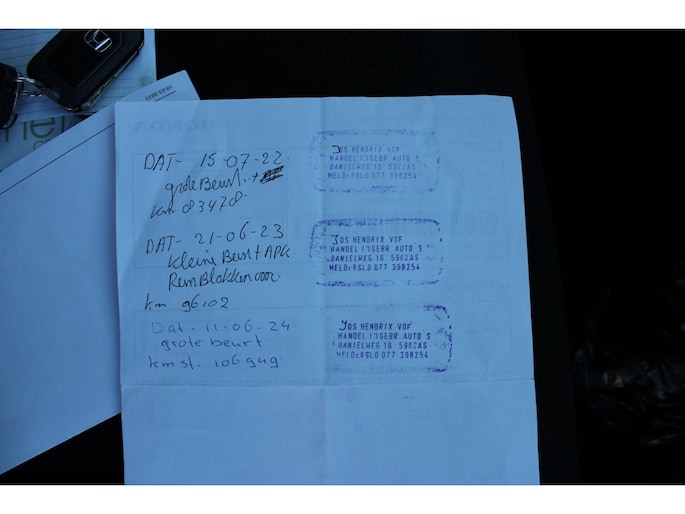 DAT- 15-07-22
grote Beurt +
km 83478
JOS HENDRIX VOF
HANDEL I GEBR AUTO'S
DANIELWEG 16 5962AS
MELDERSLO 077 398254
DAT- 21-06-23
kleine Beurt + APK
RemBlokken voor
km 96102
JOS HENDRIX VOF
HANDEL I GEBR AUTO'S
DANIELWEG 16 5962AS
MELDERSLO 077 398254
Dat - 11-06-24
grote beurt
km st. 106949
JOS HENDRIX VOF
HANDEL I GEBR AUTO'S
DANIELWEG 16 5962AS
MELDERSLO 077 398254
HONDA